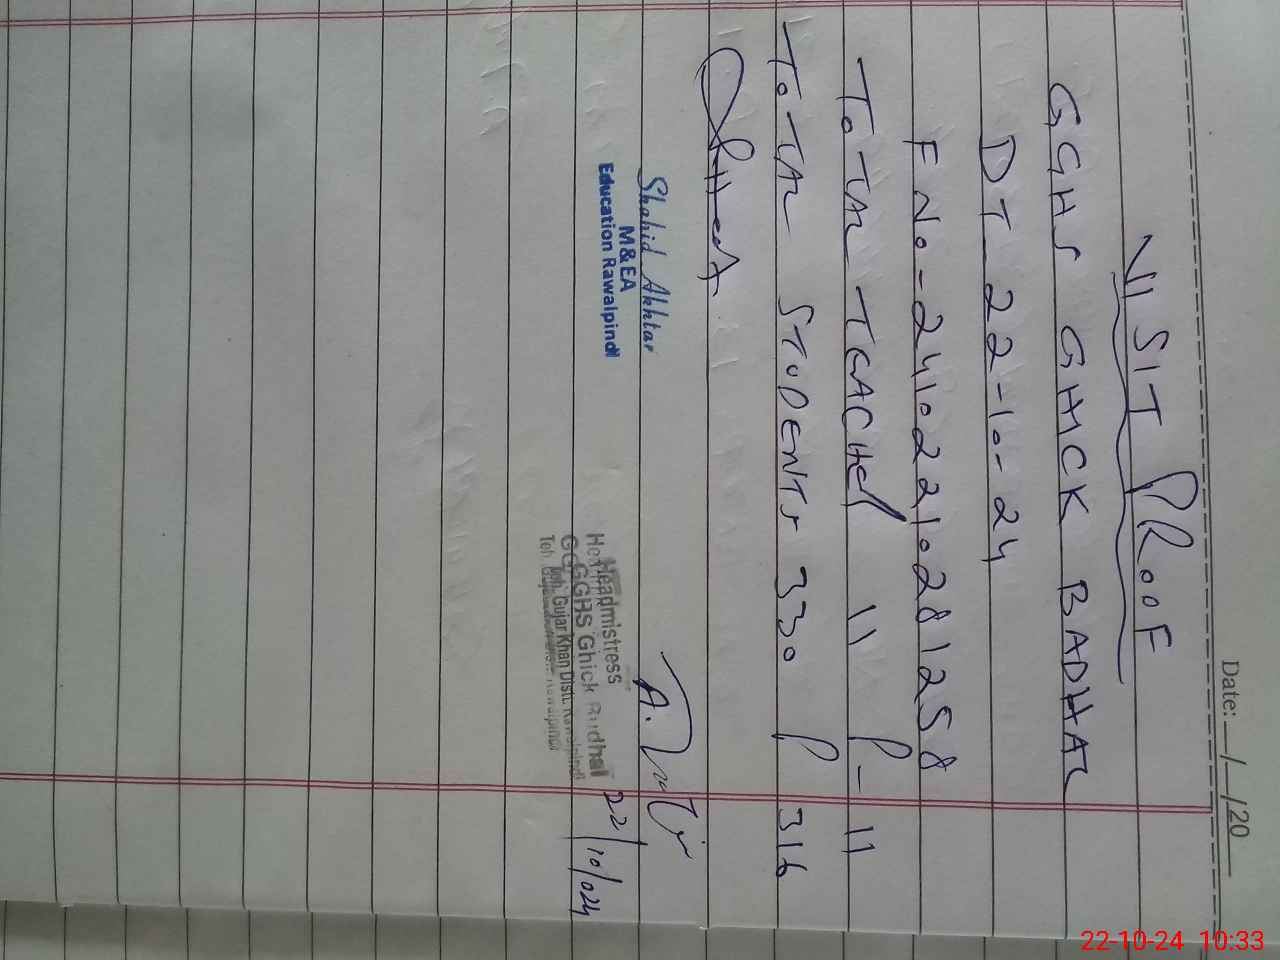 Date: __/__/20__
VISIT PROOF
GGHS GHICK BADHAL
DT 22-10-24
F No-24102210281258
TOTAL TEACHER 11 P-11
TOTAL STUDENTS 330 P 316
Shahid Akhtar
M&EA
Education Rawalpindi
22/10/024
Headmistress
GGHS Ghick Budhal
Teh. Gujar Khan Distt. Rawalpindi
22-10-24 10:33